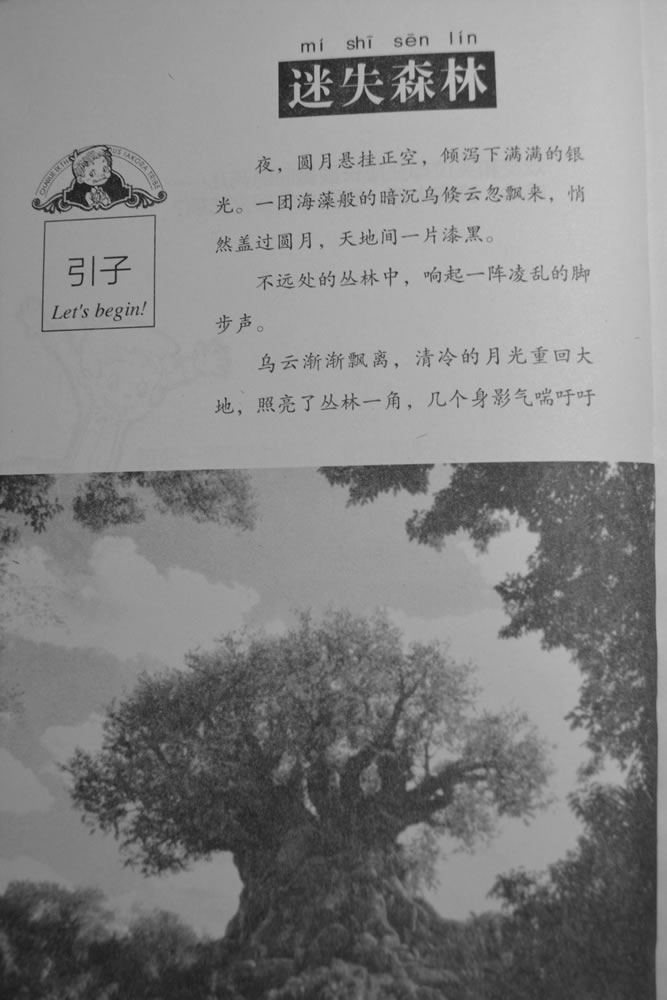 mí shī sēn lín
迷失森林
引子
Let's begin!
夜，圆月悬挂正空，倾泻下满满的银
光。一团海藻般的暗沉乌倏云忽飘来，悄
然盖过圆月，天地间一片漆黑。
不远处的丛林中，响起一阵凌乱的脚
步声。
乌云渐渐飘离，清冷的月光重回大
地，照亮了丛林一角，几个身影气喘吁吁